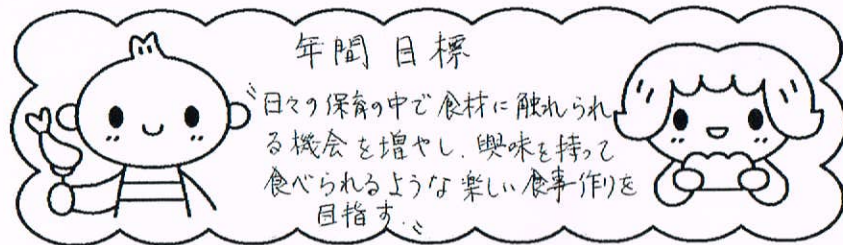 年間目標
〝日々の保育の中で食材に触れられ
る機会を増やし、興味を持って
食べられるような楽しい食事作りを
目指す.〟